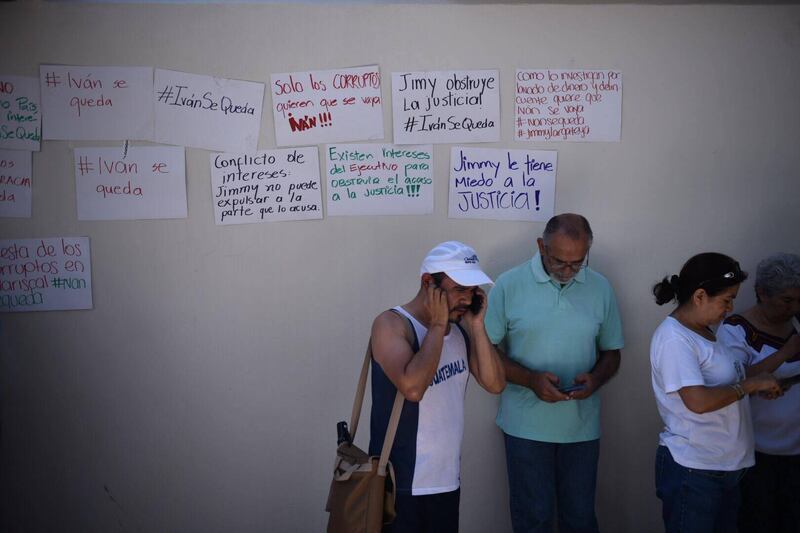 #Iván se
queda
#IvánSeQueda
Solo los CORRUPTOS
quieren que se vaya
¡IVÁN!!!
Jimy obstruye
La justicial
#IvánSeQueda
Como lo investigan por
lavado de dinero y delin
cuente quiere que
Iván se vaya
#ivanseQueda
País
#Iván se
queda
Conflicto de
intereses:
Jimmy no puede
expulsar a la
parte que lo acusa.
Existen Intereses
del Ejecutivo para
obstruir el acaso
a la Justicia!!!
Jimmy le tiene
Miedo a la
JUSTICIA!
RACIA
da
esta de los
orruptos en
ariscal #Ivan
equeda
GUATEMALA